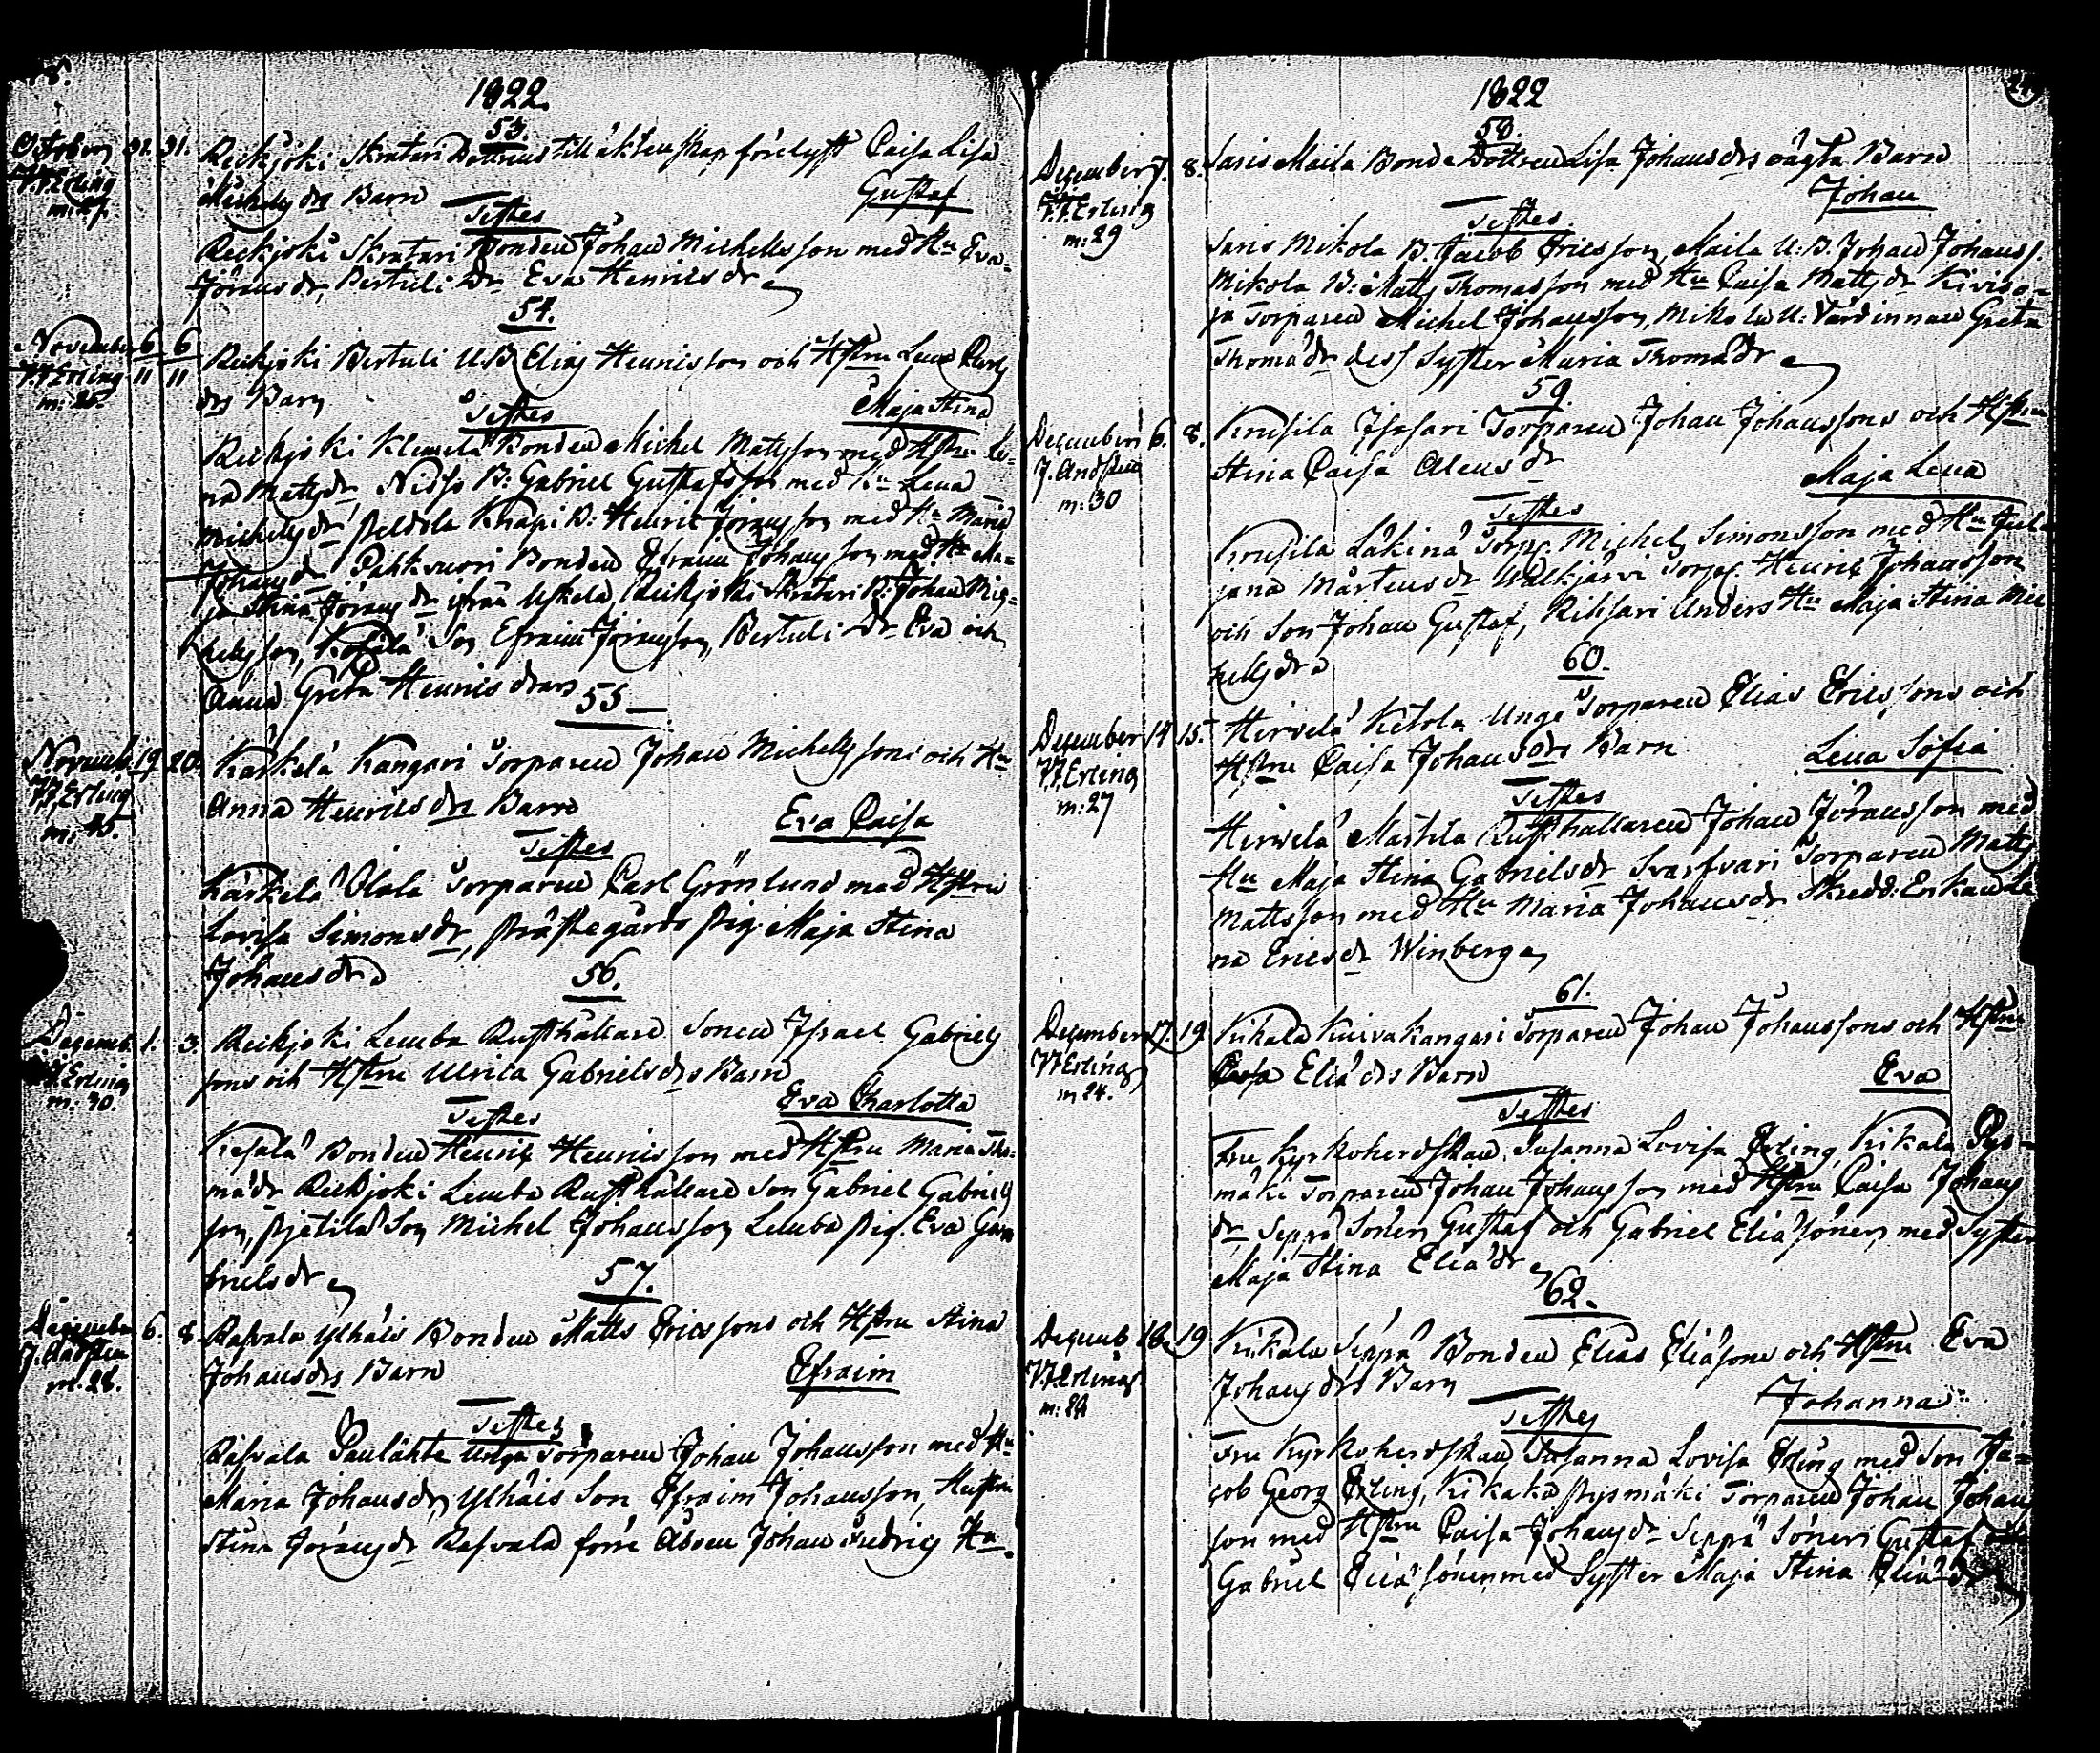 1822.
53.
October 31. 31. Reikjoki Skratari Dottrens till äktenskap förelyfst Caisa Lisa
J.J. Erling Michelsdrs Barn Gustaf
m: 27.
Testes
Reikjoki Skratari Bonden Johan Michellsson med Hu Eva
Jöransdr, Bertuli Dr Eva Henricsdr
54.
November 6 6 Reikjoki Bertuli U.B. Elias Henricsson och Hstru Lena Carls
J.J. Erling 11 11 drs Barn Maja Stina
Testes
Reikjoki Klemelä Bonden Michel Mattsson med Hstru Le=
na Mattsdr B: Gabriel Gustafsson med Hu Lena
Michelsdr Peldola Knapi B: Henric Jöransson med Hu Maria
Johansdr Pahkvuori Bonden Efraim Johansson med Hu Ma=
ja Stina Jöransdr ifrån Uskela, Reikjoki Skratari B: Johan Mic=
helsson, Son Efraim Jöransson, Bertuli Dr Eva och
Anna Greta Henricsdrar
55
Novemb. 19 20. Kärkelä Kangari Torparen Johan Michellssons och Hu
J.J. Erling Anna Henricsdrs Barn Eva Caisa
m: 45.
Testes
Kärkelä Olala Torparen Carl Grönlund med Hstru
Lovisa Simonsdr, Prästegårds Pig. Maja Stina
Johansdr
56.
Decemb. 1. 3. Reikjoki Lemba Rusthållare Sonen Israel Gabriels
J.J. Erling sons och Hstru Ulrica Gabrielsdrs Barn
m: 30. Eva Charlotta
Testes
Kesälä Bonden Henric Henricsson med Hstru Maria Tho=
mädr Reikjoki Lemba Rusthållare Son Gabriel Gabriels
son, Pietilä Son Michel Johansson Lemba Pig. Eva Ga
brielsdr
57.
December 6. 8. Rasvala Ylhäis Bonden Matts Ericssons och Hstru Stina
J. Andsten Johansdrs Barn Efraim
m. 28.
Testes
Rasvala Paulähte Unga Torparen Johan Johansson med Hu
Maria Johansdr, Ylhäis Son Efraim Johansson, Hustru
Stina Jöransdr Rasvala förre Åboen Johan Fredrics Hu.
1822
58.
December 7. 8. Saris Maila Bonde Dottren Lisa Johansdrs oägta Barn
J.J. Erling Johan
m: 29
Testes
Saris Mikola B. Jacob Ericsson, Maila U.B. Johan Johanss.
Mikola B: Matts Thomasson med Hu Caisa Mattsdr Kiviso=
ja Torparen Michel Johansson, Mikola U: Värdinnan Greta
Thomädr dess Syster Maria Thomädr
59.
December 6. 8. Krusila Isosari Torparen Johan Johanssons och Hstru
J. Andsten Stina Caisa Alensdr Maja Lena
m: 30
Testes
Krusila Läkinä Torp. Michel Simonsson med Hu Jul
jana Mårtensdr Walkjärvi Torp. Henric Johansson
och Son Johan Gustaf, Riksari Anders Hu Maja Stina Mic
hellsdr
60.
December 14 15. Hirvelä Ketola Unge Torparen Elias Ericssons och
J.J. Erling Hstru Caisa Johansdrs Barn Lena Sofia
m: 27
Testes
Hirvelä Markila Rusthållaren Johan Jöransson med
Hu Maja Stina Gabrielsdr Svarfvari Torparen Matts
Mattsson med Hu Maria Johansdr Skredd: Enkan Le
na Ericsdr Winberg
61.
December 17. 19. Kikala Kuivakangari Torparen Johan Johanssons och Hstru
J.J. Erling Caisa Eliädrs Barn Eva
m 24.
Testes
Fru Kyrkoherdskan Susanna Lovisa Erling, Kikala Pys=
mäki Torparen Johan Johansson med Hstru Caisa Johans
dr Seppä Söner Gustaf och Gabriel Eliä Söner med Syster
Maja Stina Eliädr
62.
Decemb 18 19 Kikala Seppä Bonden Elias Eliäsons och Hstru Eva
J.J. Erling Johansdrs Barn Johanna
Testes
Fru Kyrkoherdskan Susanna Lovisa Erling med Son Ja=
cob Georg Erling, Kikala Pysmäki Torparen Johan Johans
son med Hstru Caisa Johansdr Seppä Söner Gustaf
Gabriel Eliä Söner med Syster Maja Stina Eliädr